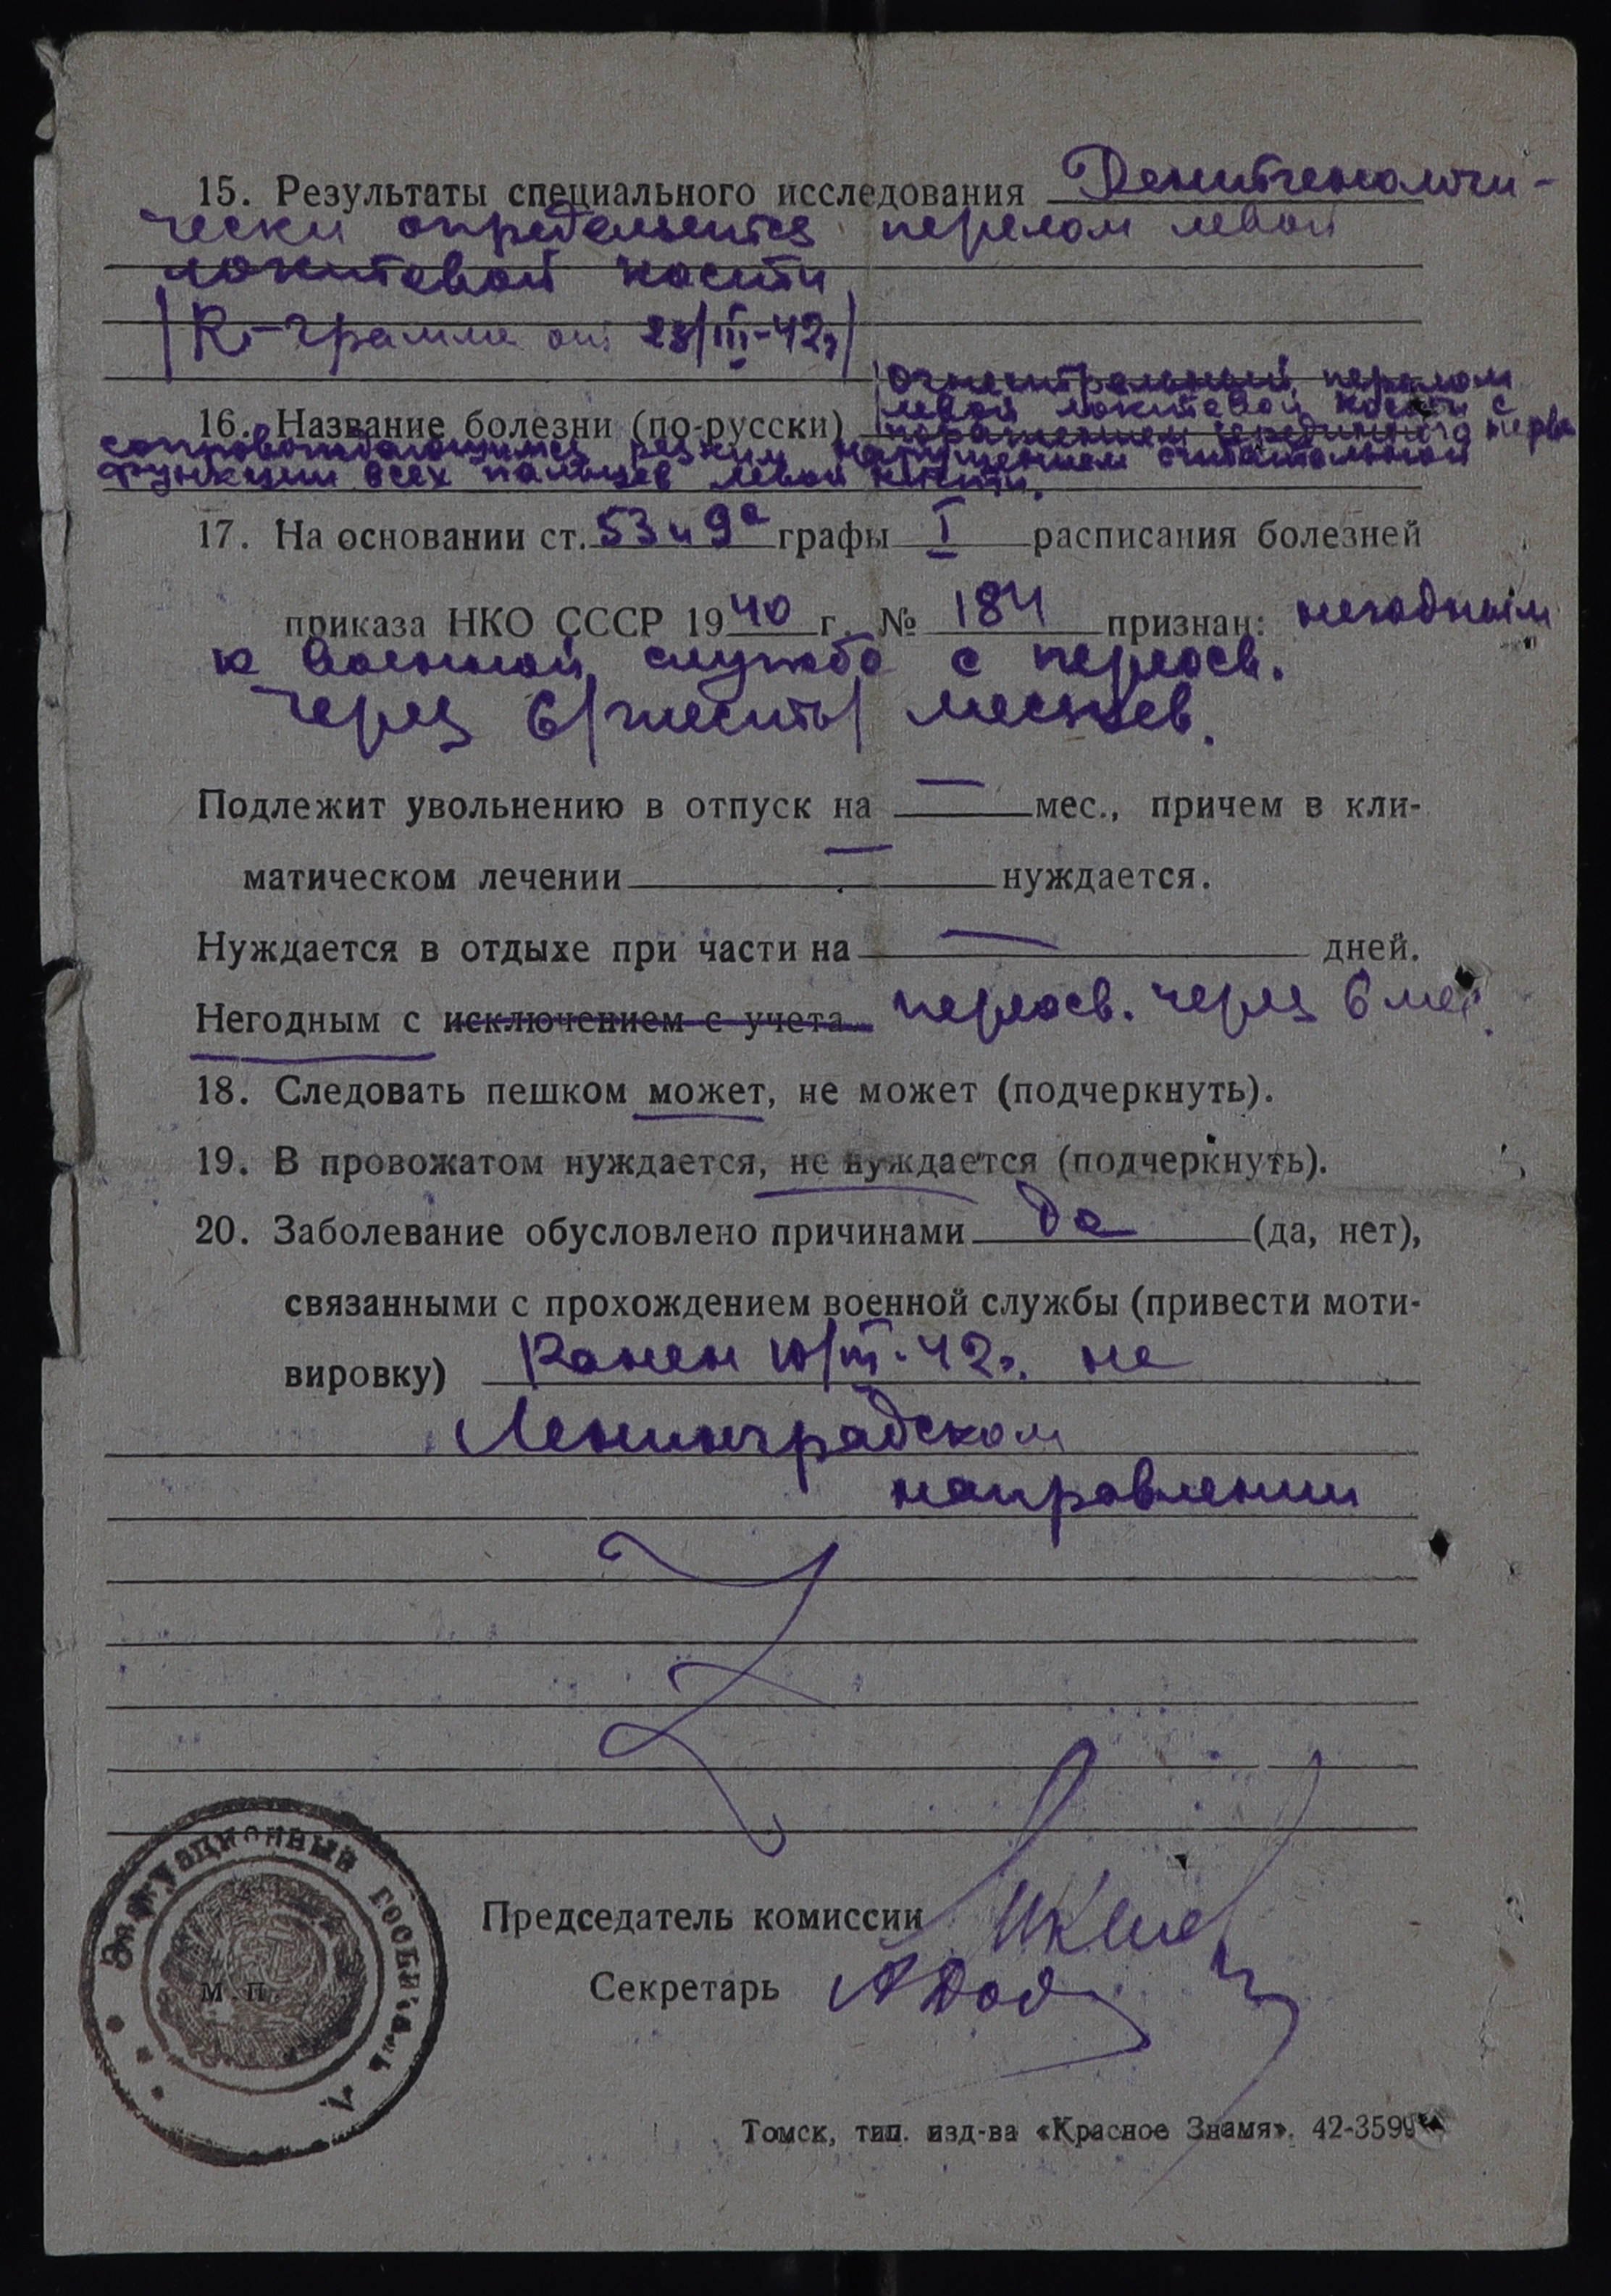 15. Результаты специального исследования Рентгенологи-
чески определяется перелом левой
локтевой кости
/R-грамма от 23/III-42г/
огнестрельный перелом
левой локтевой кости с
16. Название болезни (по-русски) поражением срединного нерва
сопровождающимся резким нарушением хватательной
функции всех пальцев левой кисти.
17. На основании ст. 53 и 9а графы I расписания болезней
приказа НКО СССР 1940 г. № 184 признан: негодным
к военной службе с переосв.
через 6/шесть/ месяцев.
Подлежит увольнению в отпуск на — мес., причем в кли-
матическом лечении — нуждается.
Нуждается в отдыхе при части на — дней.
Негодным с исключением с учета переосв. через 6 мес.
18. Следовать пешком может, не может (подчеркнуть).
19. В провожатом нуждается, не нуждается (подчеркнуть).
20. Заболевание обусловлено причинами да (да, нет),
связанными с прохождением военной службы (привести моти-
вировку) Ранен 10/III-42г. на
Ленинградском
направлении
Эвакуационный госпиталь
М.П.
Председатель комиссии
Секретарь
Томск, тип. изд-ва «Красное Знамя». 42-3599